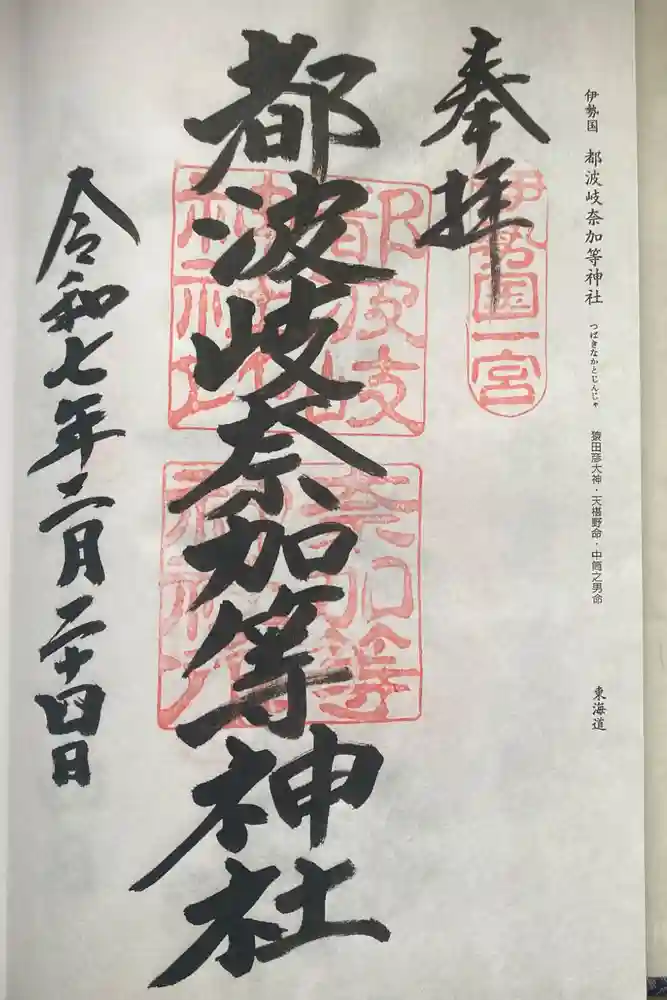 伊勢国 都波岐奈加等神社 つばきなかとじんじゃ 猿田彦大神・天椹野命・中筒之男命 東海道
奉拝
伊勢国一宮
都波岐奈加等神社
都波岐
神社
奈加等
令和七年二月二十四日